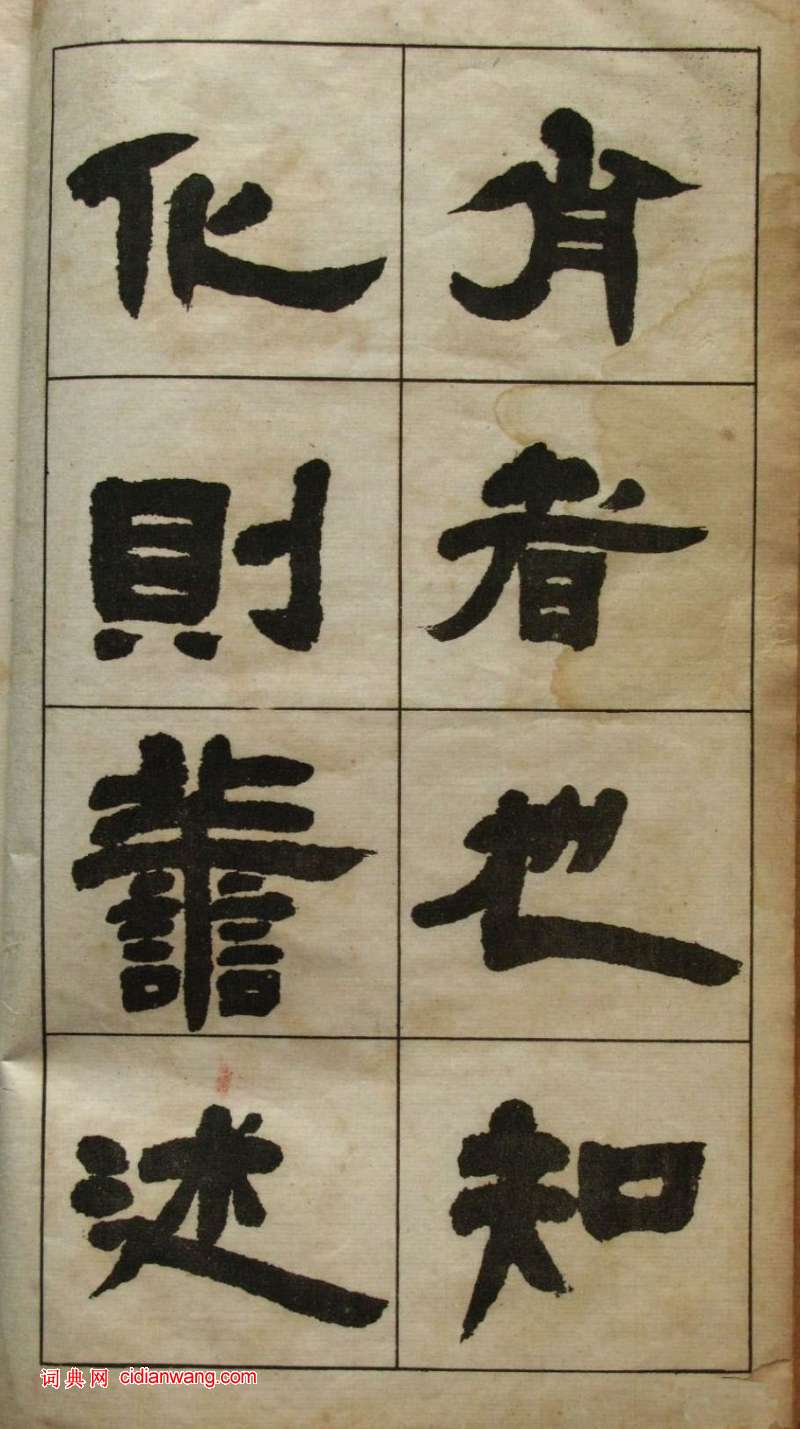 肖者也知
化則譱述
词典网 cidianwang.com